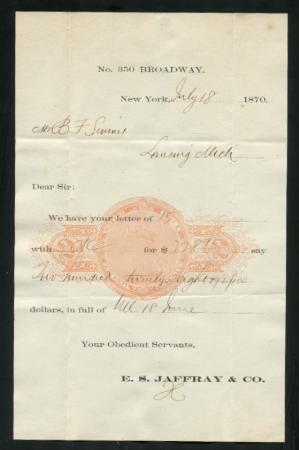 No. 350 BROADWAY.
New York, July 18 1870.
Mr B F Simons
Lansing Mich
Dear Sir:
We have your letter of 15
with for $ say
Two hundred thirty eight
dollars, in full of Bill 18 June
Your Obedient Servants,
E. S. JAFFRAY & CO.